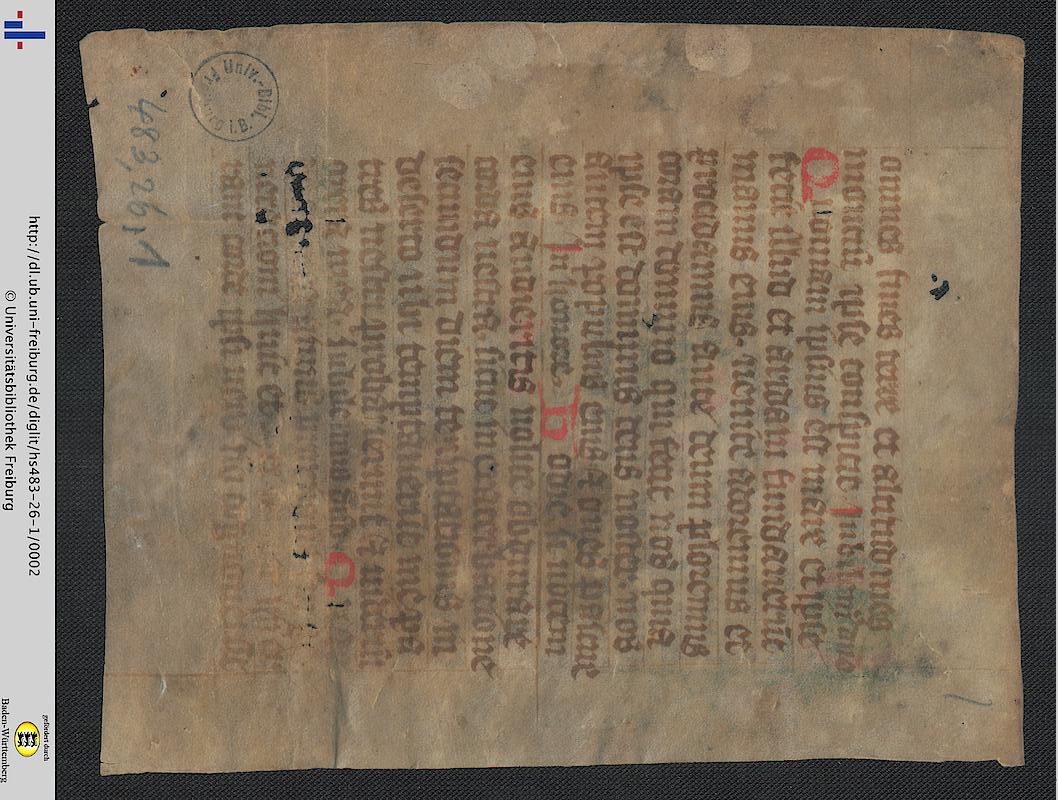 omnes fines terre et altitudines
montiū ipse conspicit Iubilemus
Quoniam ipsius est mare et ipse
fecit illud et aridam fundauerūt
manus eius. venite adoremus et
procidamus ante deum ploremus
coram domino qui fecit nos quia
ipse est dominus deus noster. nos
autem populus eius ⁊ oues pascue
eius In honore. Hodie si uocem
eius audieritis nolite obdurare
corda uestra sicut in exacerbatione
secundum diem temptationis in
deserto ubi temptauerūt me pa
tres uestri probauerunt ⁊ uiderūt
opera mea Iubilemus deo Q
huic et
483,26,1
1
Univ.-Bibl. Freiburg i.B.
http://dl.ub.uni-freiburg.de/diglit/hs483-26-1/0002
© Universitätsbibliothek Freiburg
gefördert durch
Baden-Württemberg